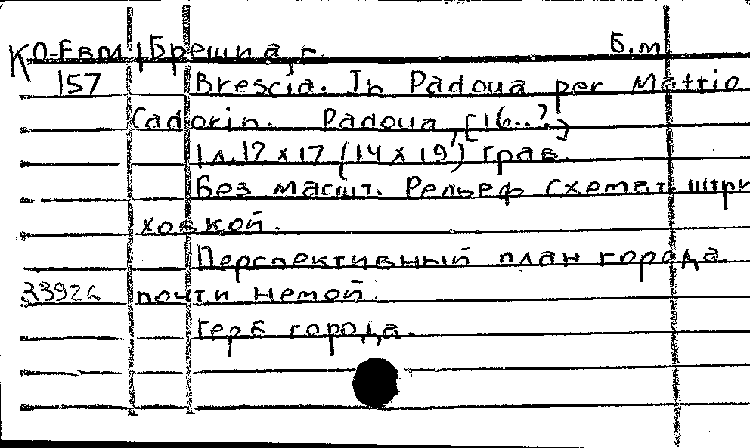 К 0-Евт Брешиа, г. Б.м
157 Brescia. In Padoua per Mattio
Cadorin. Padoua, [16..?]
1 л. 12 x 17 (14 x 19) грав.
Без масшт. Рельеф схемат. штри
ховкой.
Перспективный план города
почти немой.
Герб города.